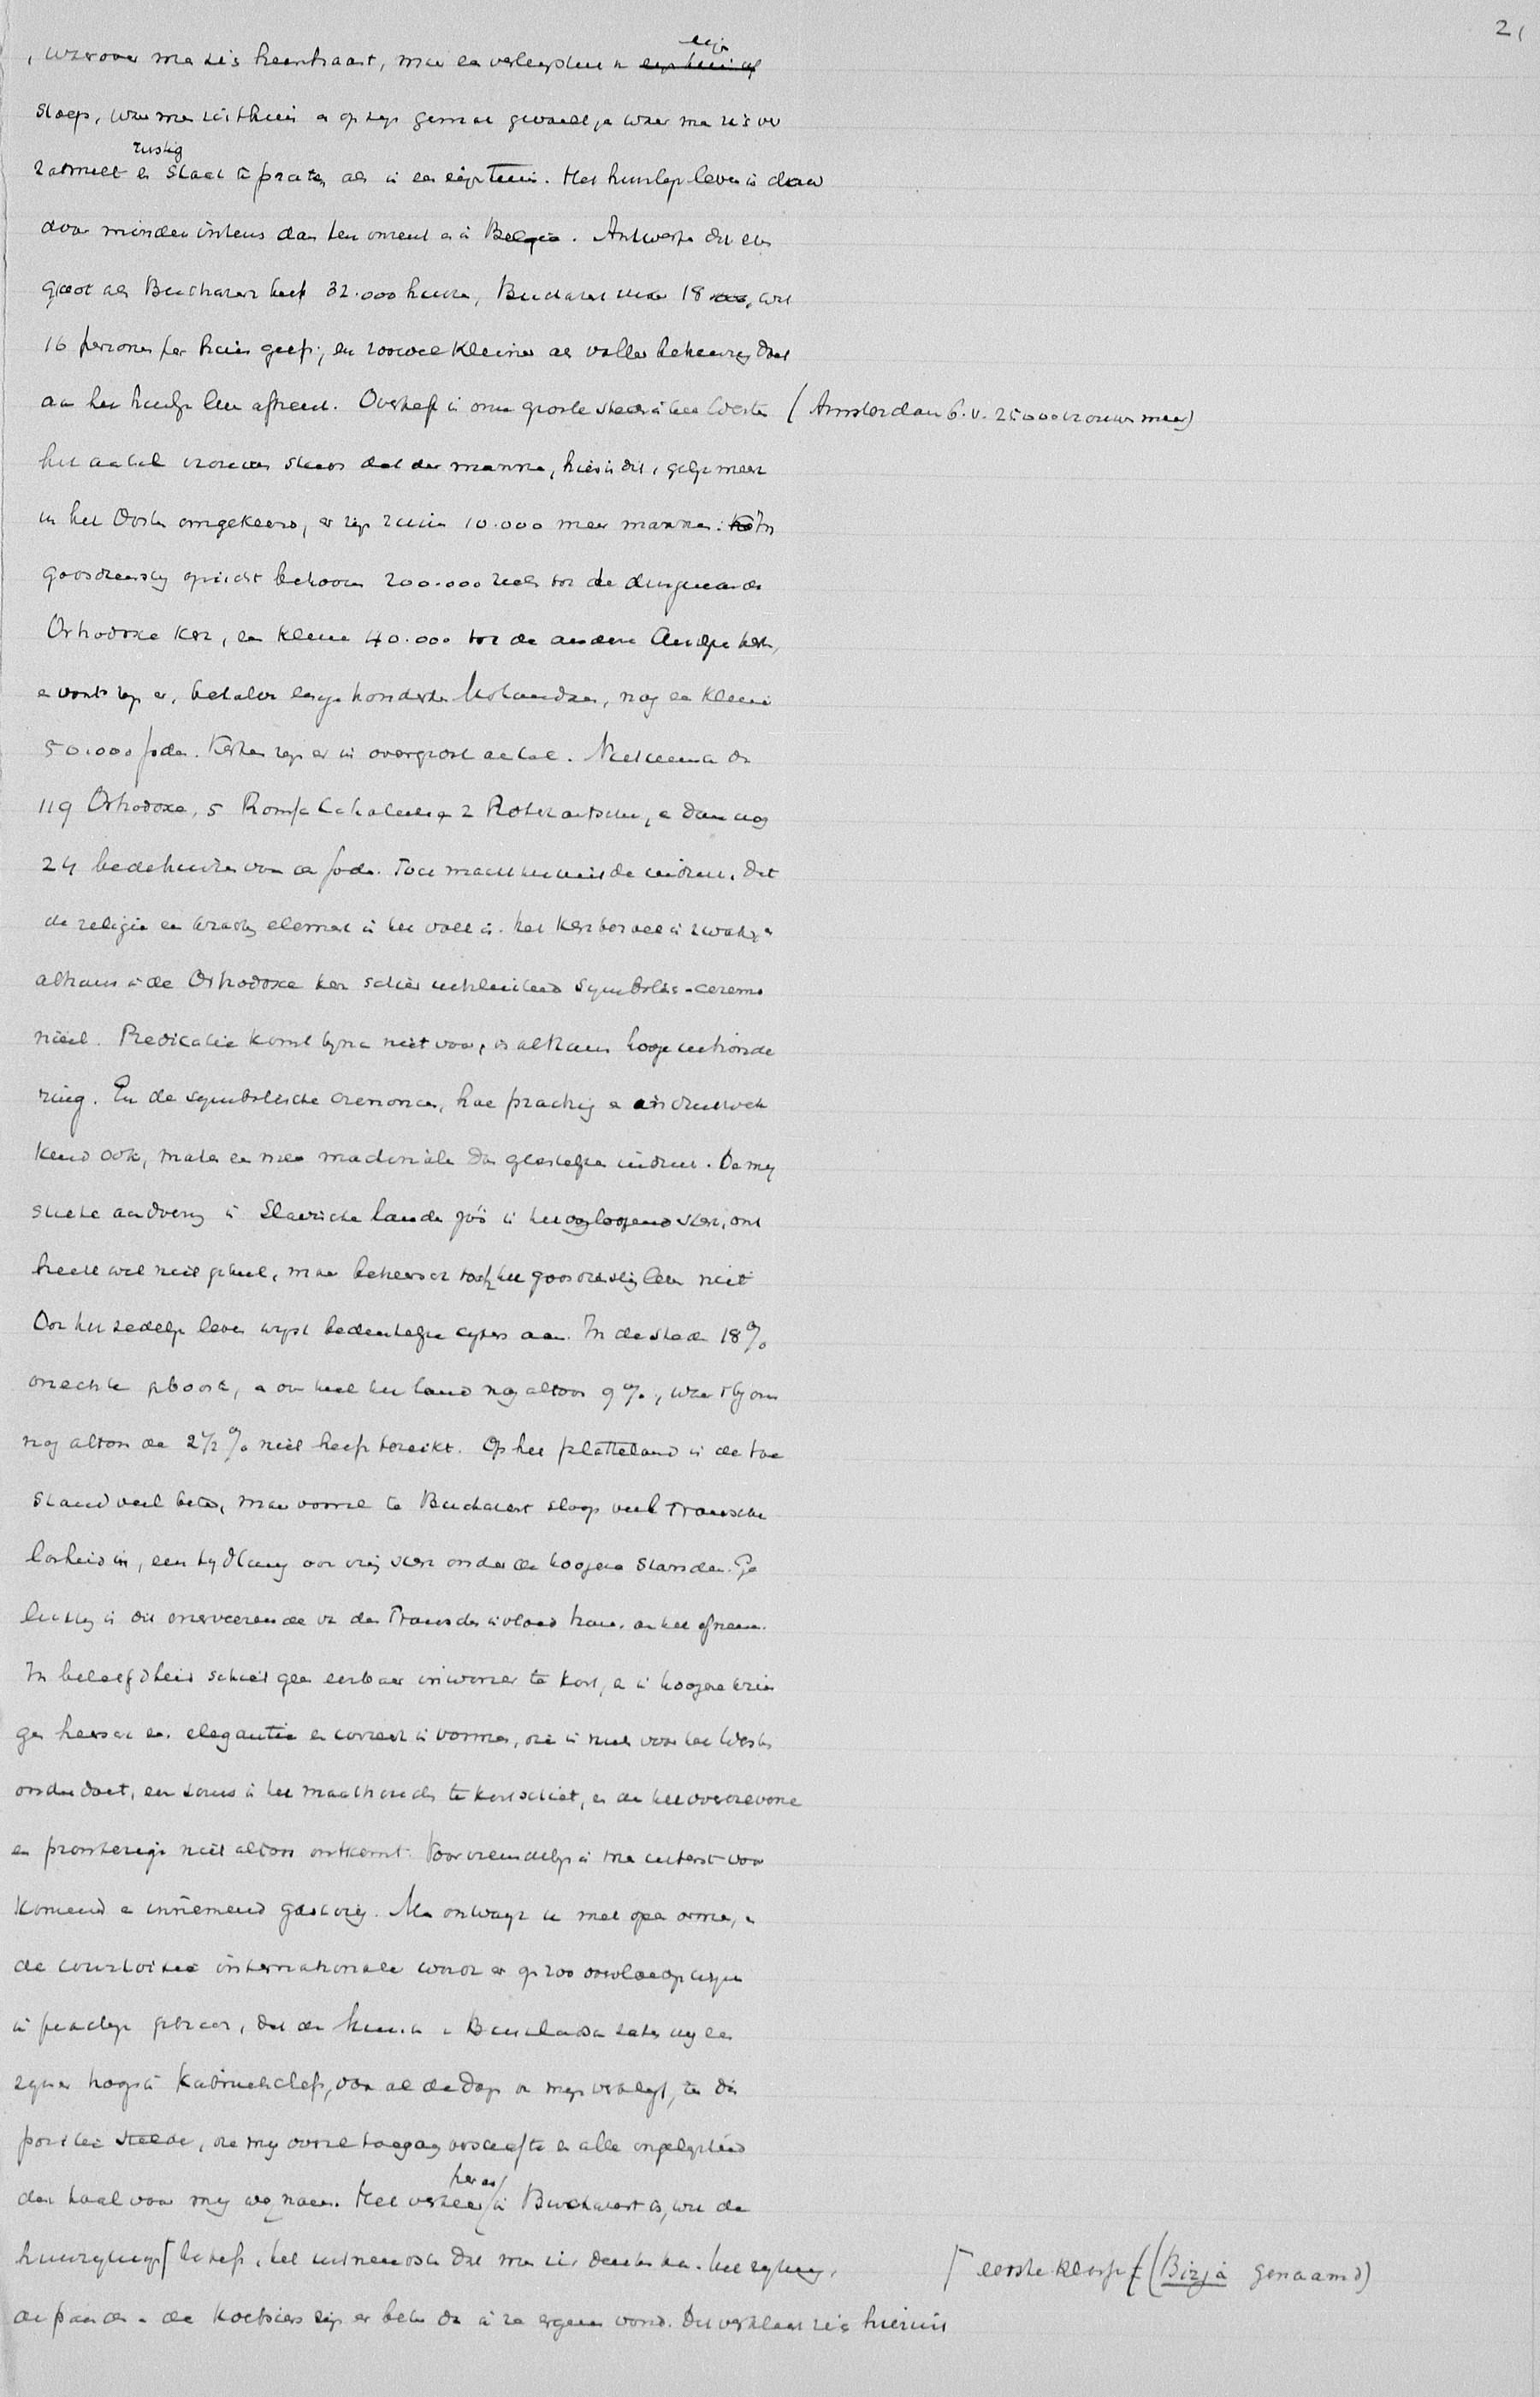 21
, waarover men zich heenhaast, maar een verlengstuk v.
eigen
stoep, waar men zich thuis en op zijn gemak gevoelt, en waar men zich
rustig
zatmeet en staat te praten als in een eigen tuin. Het huislijk leven is dan
door minder intens dan ten onzent en in België. Antwerpen dat even
groot als Bucharest heeft 32.000 huizen, Bucharest maar 18
16 personen per huis geeft, en zoowel kleiner als voller behuizing doet
aan het huislijk leven afbreuk. Overtreft in onze groote steden in het Westen (Amsterdam b.v. 25000 vrouwen meer)
het aantal vrouwen steeds dat der mannen, hier is dit, gelijk meer
in het Oosten omgekeerd, er zijn ruim 10.000 meer mannen. In
godsdienstig opzicht behooren 200.000 zielen tot de
Orthodoxe Kerk, een kleine 40.000 tot de andere Christelijke kerken,
en voorts zijn er, behalve enige honderden Mohamedanen, nog een kleine
50.000 Joden. Kerken zijn er in overgroot aantal. Niet minder dan
119 Orthodoxe, 5 Roomsch Catholieke en 2 Protestantsche, en dan nog
24 bedehuizen van de Joden. Toch maakt het niet den indruk, dat
de religie een krachtig element in het volk is. Het Kerkbezoek is zwak, en
althans in de Orthodoxe kerk schier uitsluitend symbolisch-ceremo
niëel. Predicatie komt bijna niet voor, is althans hooge uitzonde
ring. En de symbolische ceremoniën, hoe prachtig en indrukwek
kend ook, maken een meer machinale dan geestelijken indruk. De mys
tieke aandoening in Slavische landen zoo in het oogloopend sterk, ont
breekt wel niet geheel, maar beheerscht toch het godsdienstig leven niet
Ook het zedelijk leven wijst bedenkelijke cijfers aan. In de stad 18%
onechte geboorten, en over heel het land nog altoos 9%, waar 't bij ons
nog altoos de 2½% niet heeft bereikt. Op het platteland is de toe
stand veel beter, maar vooral te Bucharest sloop veel Fransche
losheid in, een tijdlang ook vrij sterk onder de hoogere standen. Ge
lukkig is dit enerveerende van den Franschen invloed thans aan het afnemen.
In beleefdheid schiet geen eerbaar inwoner te kort, en in hoogere krin
gen heerscht een elegantie en correctheid in vormen, die in niets voor het Westen
onderdoet, een soms in het maathouden te kort schiet, en aan het overdrevene
en pronkerige niet altoos ontkomt. Voor vreemdelingen is men uiterst voor
komend en innemend gastvrij. Men ontvangt u met open armen, en
de courtoisie internationale wordt er op zoo
in practijk gebracht, dat de
zijner hoogste Kabinetchefs, voor al de dagen van mijn verblijf, ter dis
positie stelde, die mij overal toegang verschafte en alle ongelegenheid
dan haal voor mij weg nam. Het verkeer
per as
in Bucharest is, wat de
huurrijtuigen betreft, het uitnemendste dat men zich denken kan. Het rijtuig, eerste klasse (Birjà genaamd)
de paarden en de koetsiers zijn er beter dan ik ze ergens vond. Dit verklaart zich hieruit